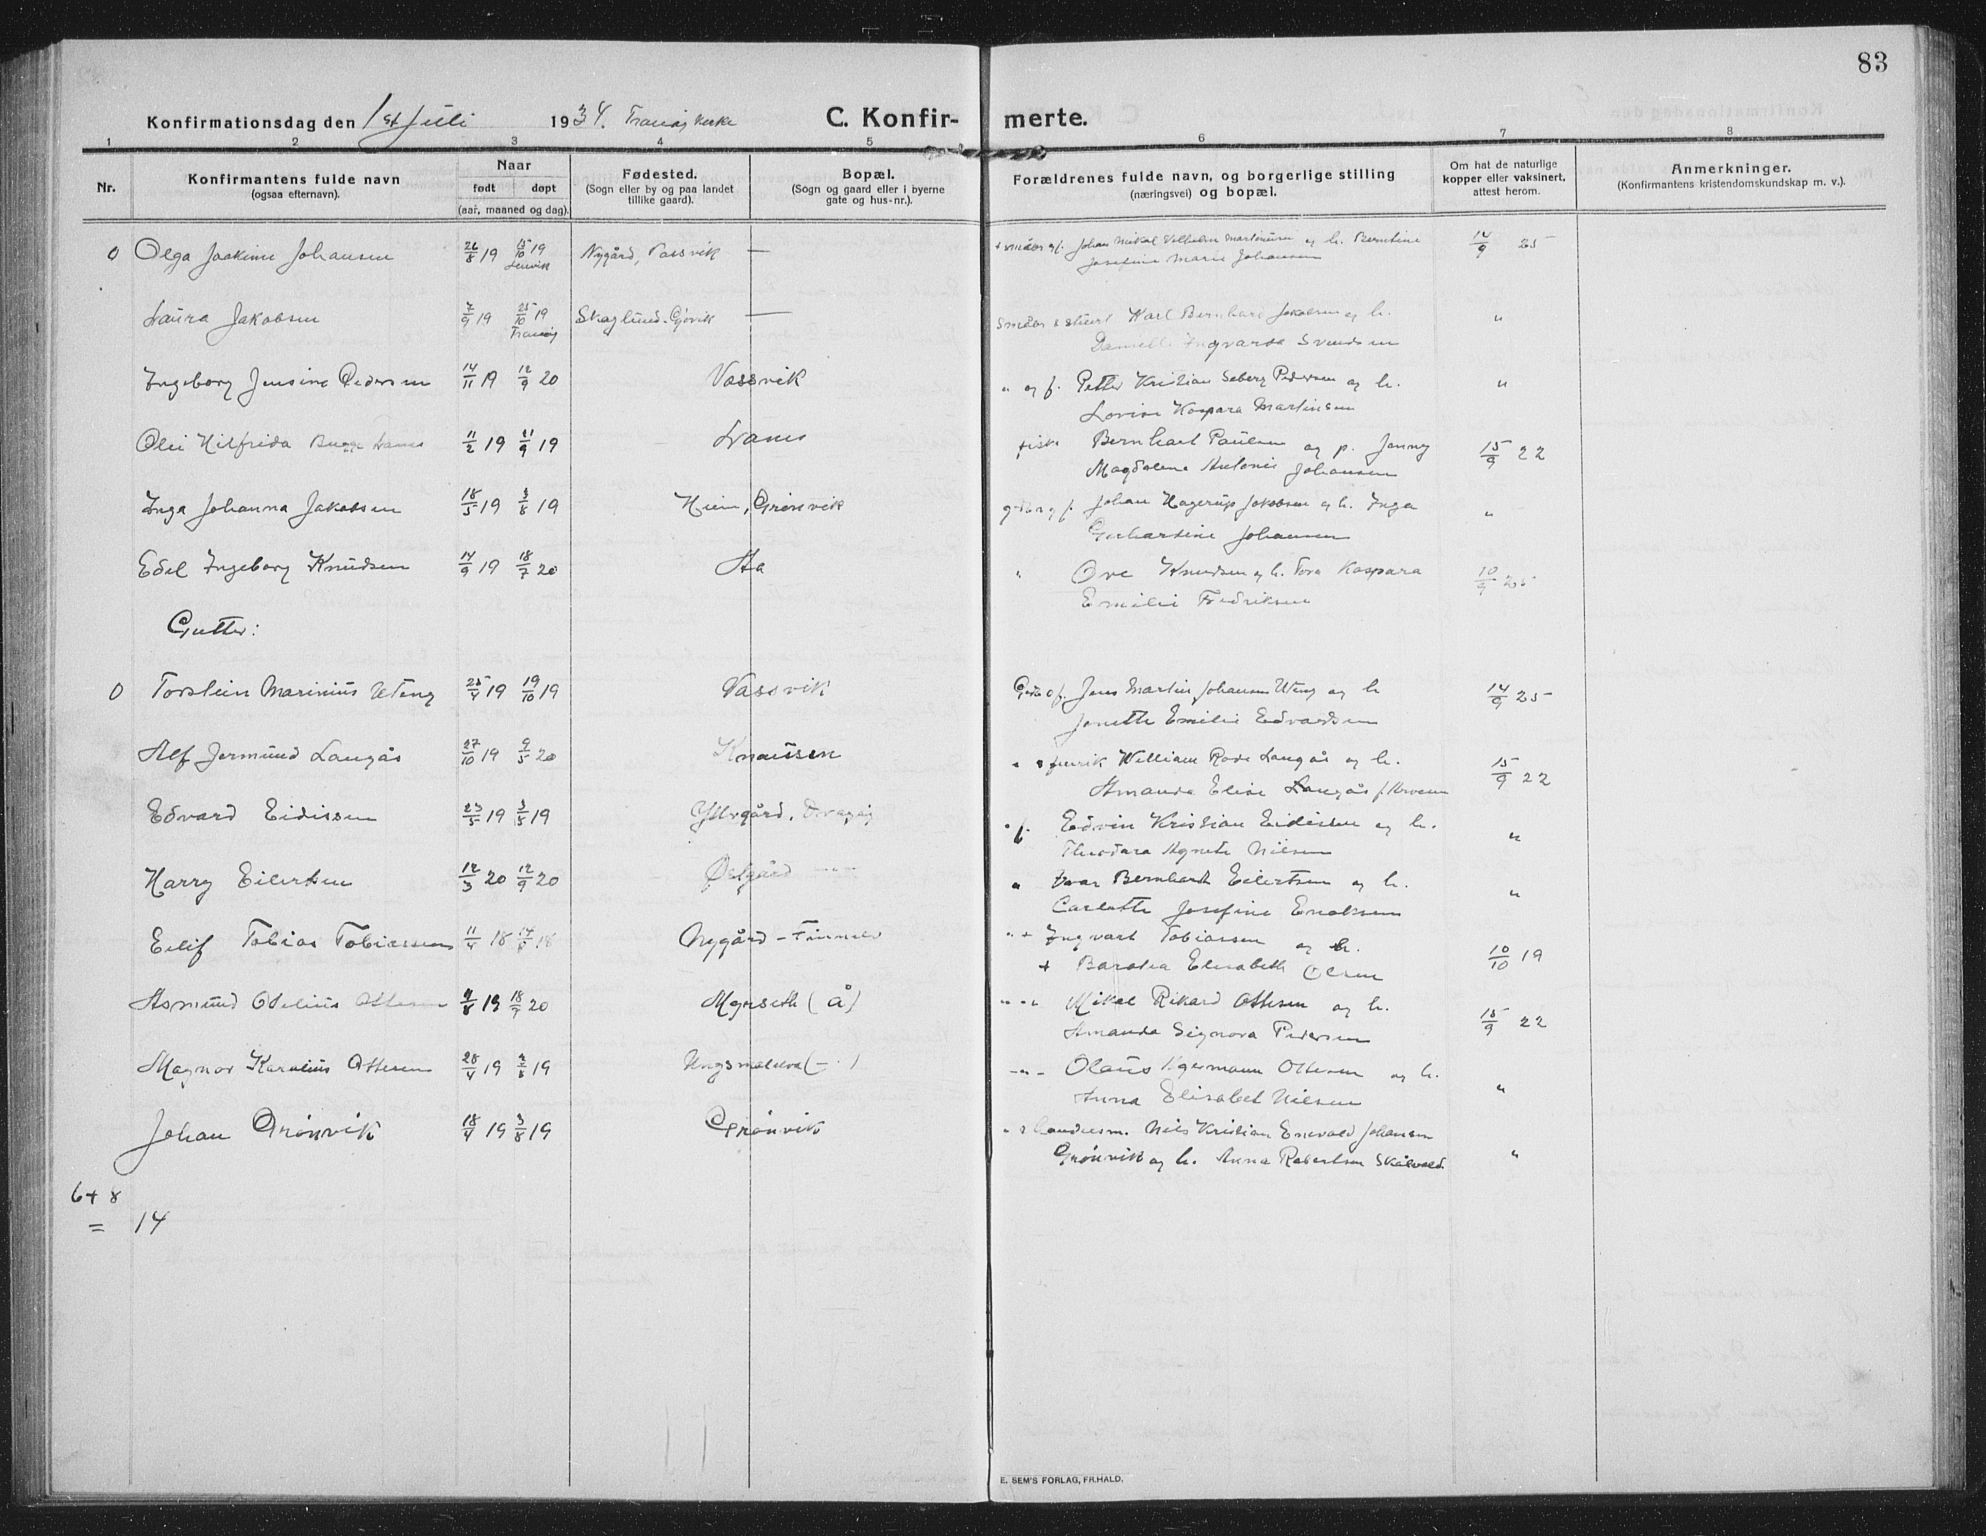 83
Konfirmationsdag den 1st Juli 1934. Tranøy kirke C. Konfir- merte.
1 2 3 4 5 6 7 8
Nr.
Konfirmantens fulde navn
(ogsaa efternavn).
Naar
født døpt
(aar, maaned og dag).
Fødested.
(Sogn eller by og paa landet
tillike gaard).
Bopæl.
(Sogn og gaard eller i byerne
gate og hus-nr.).
Forældrenes fulde navn, og borgerlige stilling
(næringsvei) og bopæl.
Om hat de naturlige
kopper eller vaksinert,
attest herom.
Anmerkninger.
(Konfirmantens kristendomskundskap m. v.).
0 Olga Joakime Johansen 26/8 19 15/10 19 Nygård, Vassvik — Johan Mikal Vilhelm og h. Berntine 14/9 25
Lenvik Josefine Marie Johansen
Laura Jakobsen 7/9 19 25/10 19 Skaglund - Gjøvik — Karl Bernhard Jakobsen og h. "
Tranøy Ingvarda Svendsen
Ingeborg Jensine Pedersen 14/11 19 12/9 20 Vassvik " og f. Petter Kristian Seberg Pedersen og h. "
Lovise Kaspara Martinsen
Hilfrida 11/2 19 21/9 19 fisk Bernhart Paulsen og p. Jenny 15/9 22
Magdalena Antonie Johansen
Inga Johanna Jakobsen 18/5 19 3/8 19 Grønvik Johan Hagerup Jakobsen og h. Inga "
Johansen
Edel Ingeborg Knudsen 14/9 19 18/7 20 Aa " Ove Knudsen og h. Tora Kaspara 10/9 25
Emilie Fredriksen
Gutter:
0 Torstein Marinius Uteng 25/4 19 19/10 19 Vassvik Jens Martin Johansen Uteng og h 14/9 25
Jonette Emilie Edvardsen
Alf Jermund Langås 27/10 19 9/5 20 Knaussen William Rode Langås og h. 15/9 22
Amanda Elise Langås
Edvard Eidissen 23/5 19 3/5 19 Ytregård, f. Edvin Kristian Eidissen og h. "
Theodora Agnete Nilsen
Harry Eilertsen 12/3 20 12/9 20 Østgård — " Ivar Bernhardt Eilertsen og h. "
Carlotte Josefine Enoksen
Eilif Tobias Tobiassen 11/4 18 18 Nygård - " + Ingvart Tobiassen og h. 10/10 19
+ Elisabeth Olsen
Asmund Otelius Ottesen 4/8 19 18/7 20 Myrseth (Å) Mikal Rikard Ottesen og h. 15/9 22
Amanda Signora Pedersen
Magnor Karelius Ottesen 28/4 19 19 ( - " ) - " - Olaus Hjermann Ottesen og h. "
Anna Elisabet Nilsen
Johan Grønvik 18/4 19 3/8 19 Grønvik Nils Kristian Enevald Johansen
Grønvik og h. Anna Robertsen Skålvold. "
6 + 8
= 14
E. SEM'S FORLAG, FR.HALD.